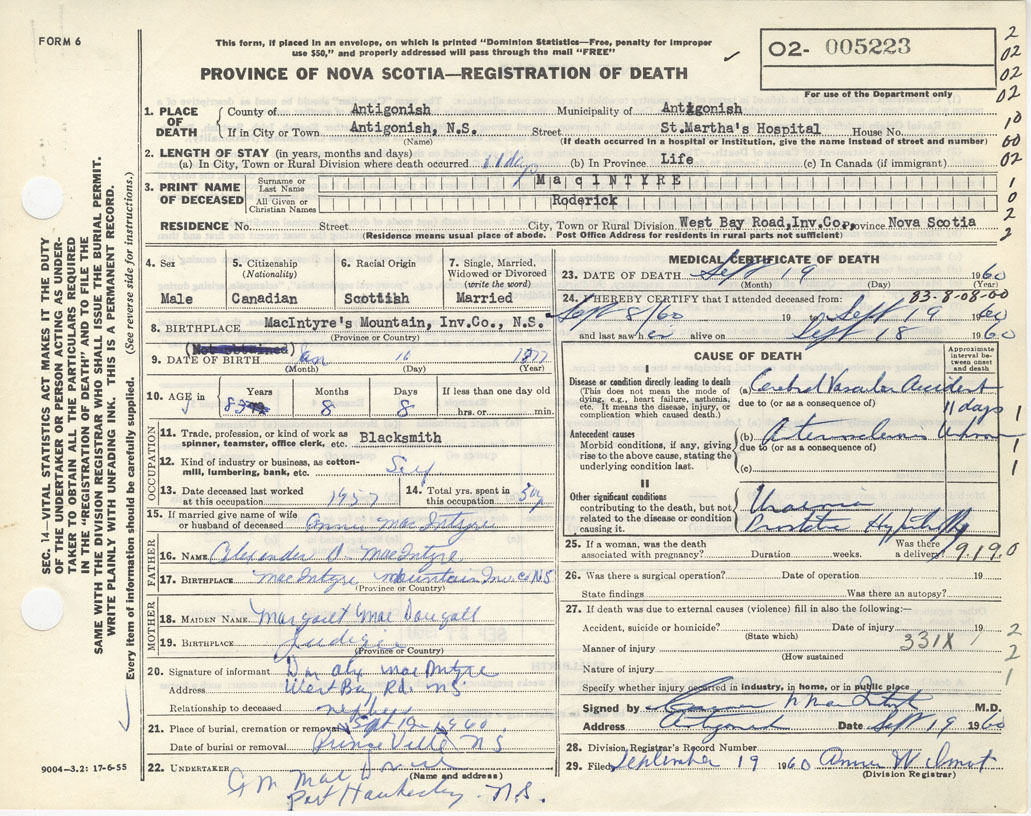 FORM 6
This form, if placed in an envelope, on which is printed "Dominion Statistics—Free, penalty for improper
use $50," and properly addressed will pass through the mail "FREE"
PROVINCE OF NOVA SCOTIA—REGISTRATION OF DEATH
02- 005223
For use of the Department only
2
02
02
02
10
00
02
1
0
2
2
1. PLACE OF DEATH
County of Antigonish Municipality of Antigonish
If in City or Town Antigonish, N.S. Street St.Martha's Hospital House No.
(Name) (If death occurred in a hospital or institution, give the name instead of street and number)
2. LENGTH OF STAY (in years, months and days)
(a) In City, Town or Rural Division where death occurred 11 days (b) In Province Life (c) In Canada (if immigrant)
3. PRINT NAME OF DECEASED
Surname or Last Name MacINTYRE
All Given or Christian Names Roderick
RESIDENCE No. Street City, Town or Rural Division West Bay Road,Inv.Co., Province Nova Scotia
(Residence means usual place of abode. Post Office Address for residents in rural parts not sufficient)
SEC. 14—VITAL STATISTICS ACT MAKES IT THE DUTY
OF THE UNDERTAKER OR PERSON ACTING AS UNDER-
TAKER TO OBTAIN ALL THE PARTICULARS REQUIRED
IN THE "REGISTRATION OF DEATH" AND TO FILE THE
SAME WITH THE DIVISION REGISTRAR WHO SHALL ISSUE THE BURIAL PERMIT.
WRITE PLAINLY WITH UNFADING INK. THIS IS A PERMANENT RECORD.
Every item of information should be carefully supplied. (See reverse side for instructions.)
4. Sex 5. Citizenship (Nationality) 6. Racial Origin 7. Single, Married, Widowed or Divorced (write the word)
Male Canadian Scottish Married
8. BIRTHPLACE MacIntyre's Mountain, Inv.Co., N.S.
(Province or Country)
(Not obtained)
9. DATE OF BIRTH Jan 10 1877
(Month) (Day) (Year)
10. AGE in Years Months Days If less than one day old
83 8 8 hrs. or min.
OCCUPATION
11. Trade, profession, or kind of work as spinner, teamster, office clerk, etc. Blacksmith
12. Kind of industry or business, as cotton-mill, lumbering, bank, etc. Self
13. Date deceased last worked at this occupation 1957 14. Total yrs. spent in this occupation 50y
15. If married give name of wife or husband of deceased Annie MacIntyre
FATHER
16. NAME Alexander D. MacIntyre
17. BIRTHPLACE MacIntyre Mountain Inv. Co N.S
(Province or Country)
MOTHER
18. MAIDEN NAME Margaret MacDougall
19. BIRTHPLACE Judique
(Province or Country)
20. Signature of informant Dn Alex MacIntyre
Address West Bay Rd. N.S
Relationship to deceased nephew
21. Place of burial, cremation or removal Sept 1960
Date of burial or removal Princeville N S
22. UNDERTAKER
(Name and address)
Port Hawkesbury N.S.
9004—3.2: 17-6-55
MEDICAL CERTIFICATE OF DEATH
23. DATE OF DEATH Sept 19 1960
(Month) (Day) (Year)
83-8-08-00
24. I HEREBY CERTIFY that I attended deceased from:
Sept 8/60 19 to Sept 19 1960
and last saw him alive on Sept 18 1960
CAUSE OF DEATH
Approximate interval between onset and death
I
Disease or condition directly leading to death
(This does not mean the mode of dying, e.g., heart failure, asthenia, etc. It means the disease, injury, or complication which caused death.)
(a) Cerebral Vascular Accident
due to (or as a consequence of) 11 days
Antecedent causes
Morbid conditions, if any, giving rise to the above cause, stating the underlying condition last.
(b) Arteriosclerosis Unknown
due to (or as a consequence of)
(c)
1
1
1
II
Other significant conditions contributing to the death, but not related to the disease or condition causing it.
Uraemia
Prostate Hypertrophy
25. If a woman, was the death associated with pregnancy? Duration weeks. Was there a delivery?
9.19.0
26. Was there a surgical operation? Date of operation 19
State findings Was there an autopsy?
27. If death was due to external causes (violence) fill in also the following:—
Accident, suicide or homicide? Date of injury 19
(State which)
Manner of injury 331X
(How sustained)
Nature of injury
2
2
1
Specify whether injury occurred in industry, in home, or in public place
Signed by M.D.
Address Antigonish Date Sept 19 1960
28. Division Registrar's Record Number
29. Filed September 19 1960 Annie Wilmot
(Division Registrar)